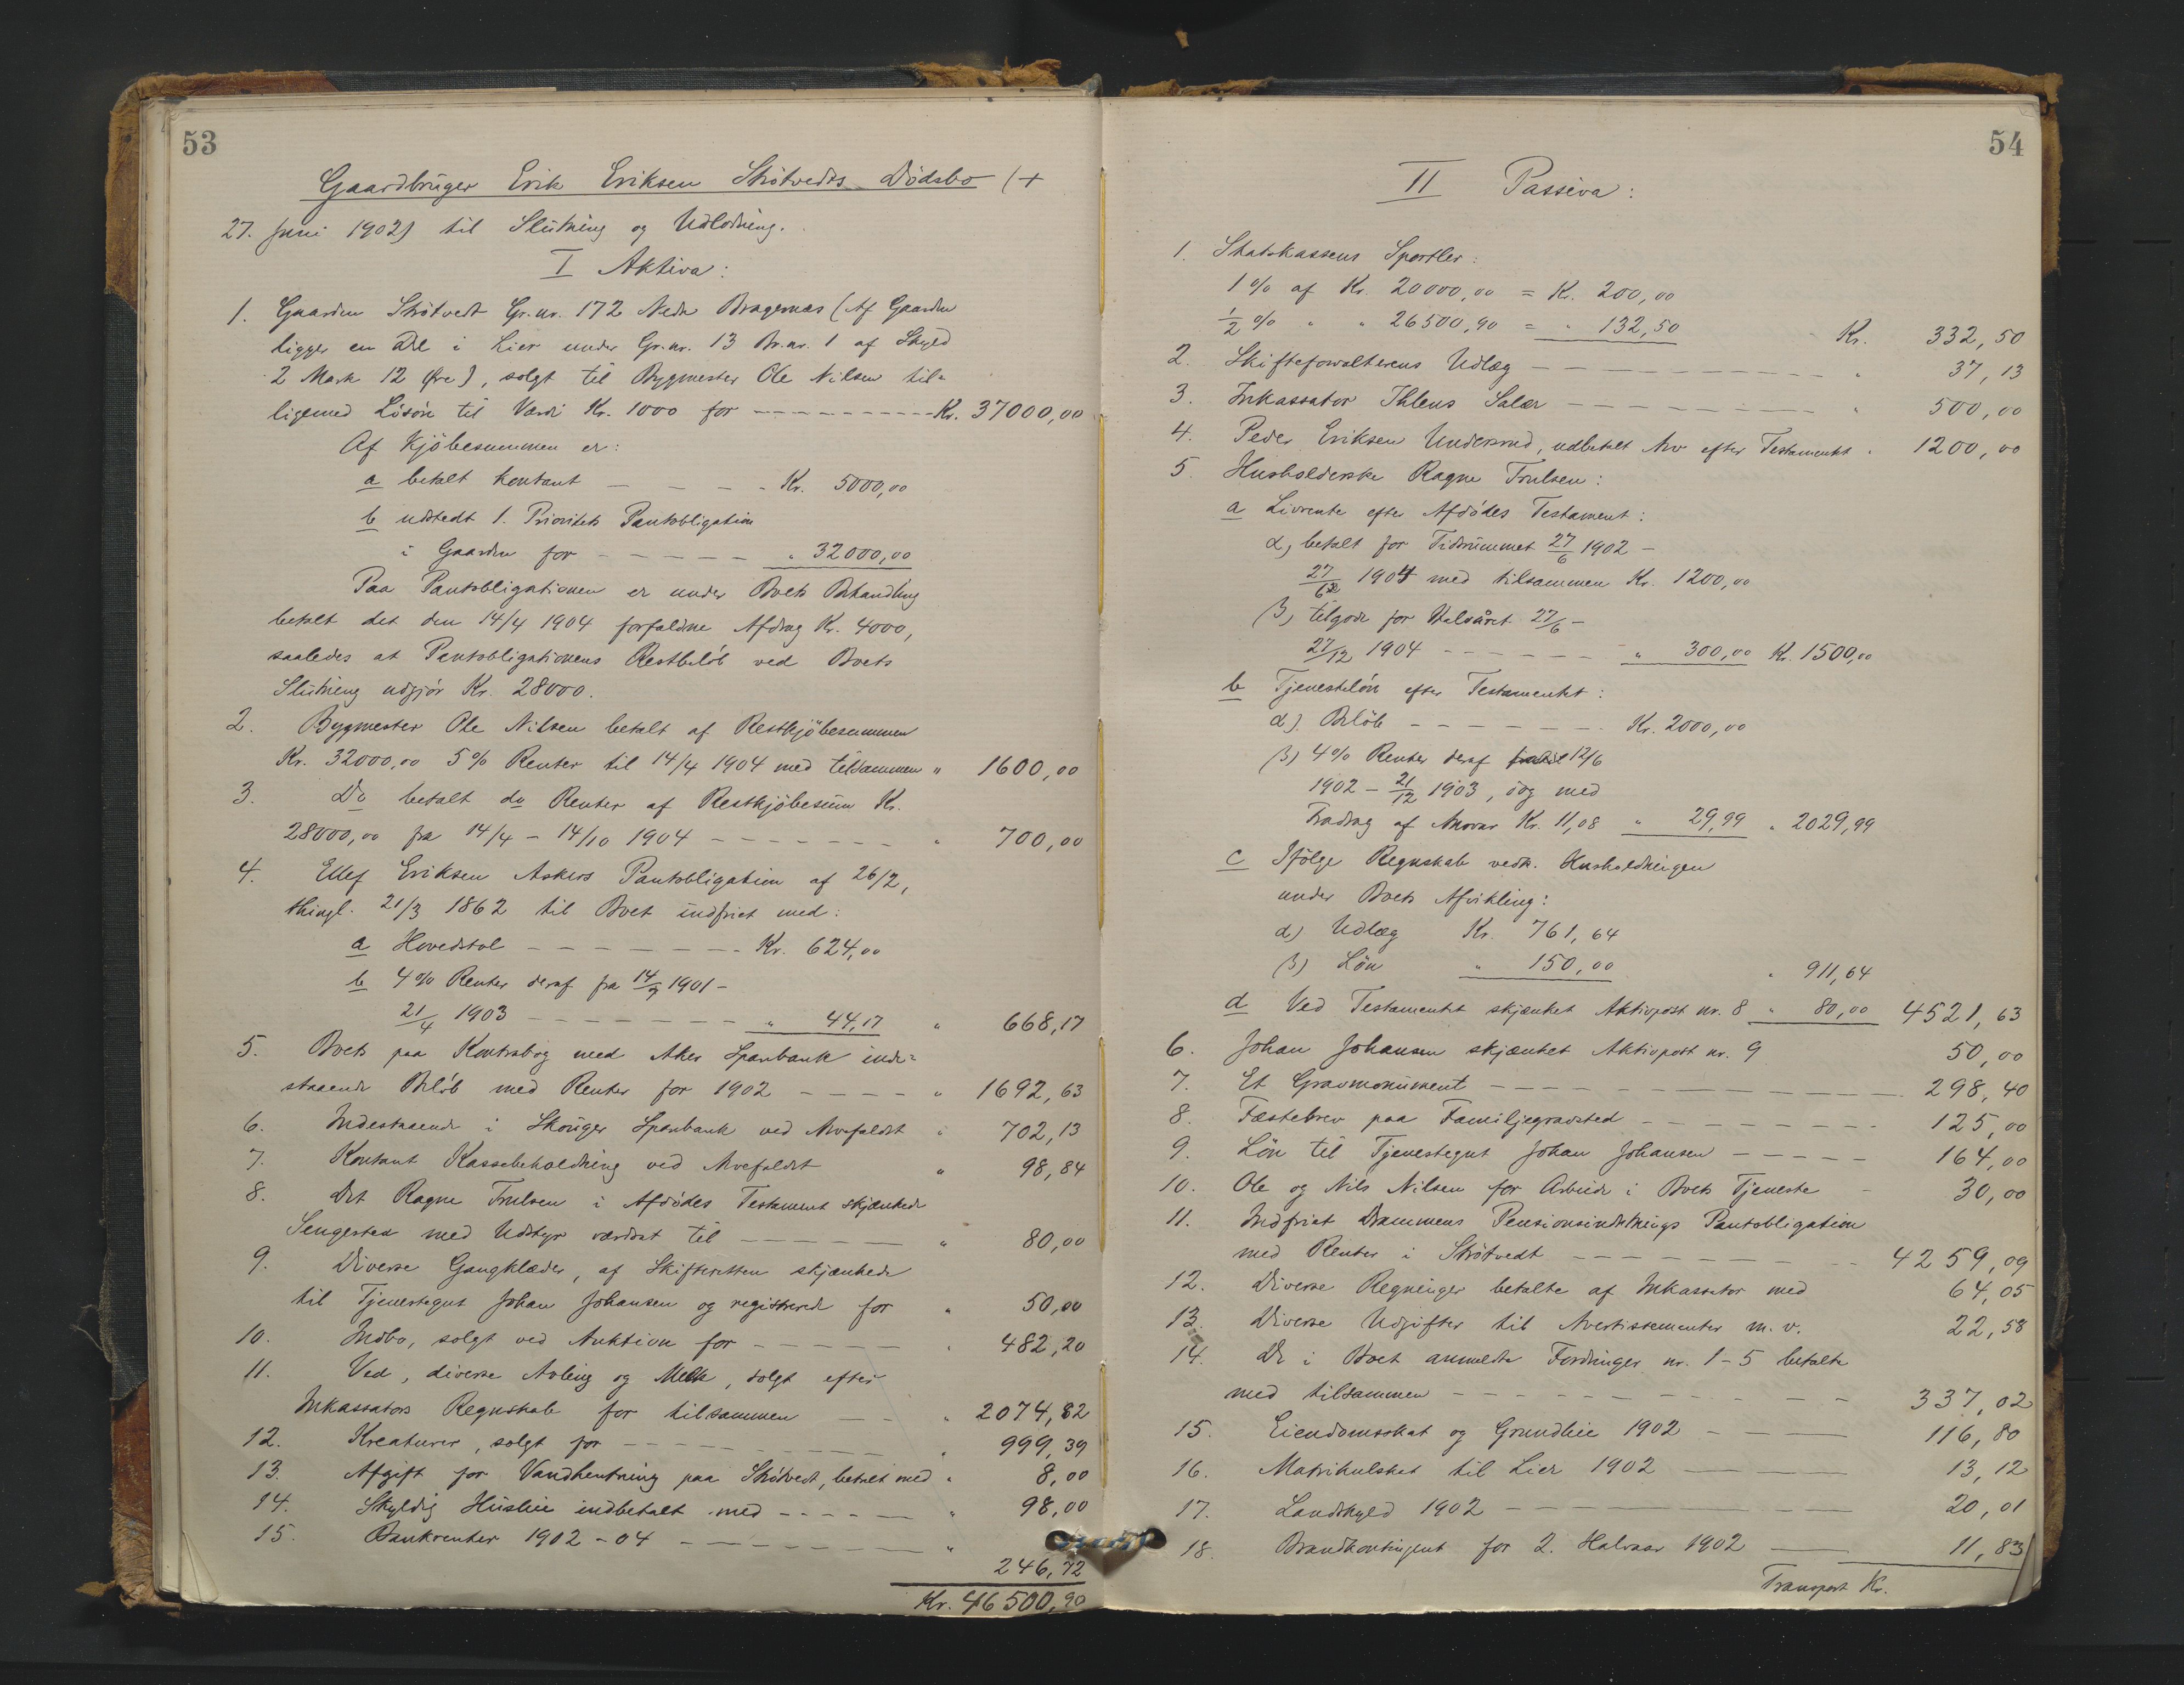 53
Gaardbruger Erik Eriksen Strøtvedts Dødsbo (+
27. Juni 1902) til Slutning og Udlodning.
I Aktiva:
1. Gaarden Strøtvedt Gr.nr. 172 Nedre Bragernæs (Af Gaarden
ligger en Del i Lier under Gr.nr. 13 Br.nr. 1 af Skyld
2 Mark 12 Øre), solgt til Bygmester Ole Nilsen til-
ligemed Løsøre til Værdi Kr. 1000 for - - - Kr. 37000,00
Af Kjøbesummen er:
a betalt kontant - - - - Kr. 5000,00
b udstedt 1. Prioritets Pantobligation
i Gaarden for - - - - - " 32000,00
Paa Pantobligationen er under Boets Behandling
betalt det den 14/4 1904 forfaldne Afdrag Kr. 4000,
saaledes at Pantobligationens Restbeløb ved Boets
Slutning udgjør Kr. 28000.
2. Bygmester Ole Nilsen betalt af Restkjøbesummen
Kr. 32000,00 5% Renter til 14/4 1904 med tilsammen " 1600,00
3. Do betalt do Renter af Restkjøbesum Kr.
28000,00 fra 14/4 - 14/10 1904 - - - - - - - " 700,00
4. Ellef Eriksen Askers Pantobligation af 26/2,
thingl. 21/3 1862 til Boet indfriet med:
a Hovedstol - - - - - - - Kr. 624,00
b 4% Renter deraf fra 14/7 1901 -
21/4 1903 - - - - - - - " 44,17 " 668,17
5. Boets paa Kontrabog med Aker Sparebank inde-
staaende Beløb med Renter for 1902 - - - - " 1692,63
6. Indestaaende i Skouger Sparebank ved Arvefaldet " 702,13
7. Kontant Kassebeholdning ved Arvefaldet " 98,84
8. Det Ragne Trulsen i Afdødes Testament skjænkede
Sengested med Udstyr værdsat til - - - - - - " 80,00
9. Diverse Gangklæder, af Skifteretten skjænkede
til Tjenestegut Johan Johansen og registrerede for " 50,00
10. Indbo, solgt ved Auktion for - - - - - " 482,20
11. Ved, diverse Avling og Melk, solgt efter
Inkassators Regnskab for tilsammen - - " 2074,82
12. Kreaturer, solgt for - - - - - - - " 999,39
13. Afgift for Vandhentning paa Strøtvedt, betalt med " 8,00
14. Skyldig Husleie indbetalt med - - - - - " 98,00
15. Bankrenter 1902 - 04 - - - - - - - "
246,72
Kr. 46500,90
54
II Passiva:
1. Statskassens Sportler:
1% af Kr. 20000,00 = Kr. 200,00
1/2 % " " 26500,90 = " 132,50 Kr. 332,50
2. Skifteforvalterens Udlæg - - - - - - - - " 37,13
3. Inkassator Ihlens Salær - - - - - - - - " 500,00
4. Peder Eriksen Undersrud, udbetalt Arv efter Testamentet " 1200,00
5. Husholderske Ragne Trulsen:
a Livrente efter Afdødes Testament:
α) betalt for Tidsrummet 27/6 1902 -
27/6 1904 med tilsammen Kr. 1200,00
β) tilgode for Halvåret 27/6 -
27/12 1904 - - - - - - " 300,00 Kr. 1500,00
b Tjenesteløn efter Testamentet:
α). Beløb - - - - - - - Kr. 2000,00
β) 4% Renter deraf 12/6
1902 - 21/12 1903, dog med
Fradrag af Kr. 11,08 " 29,99 " 2029,99
c Ifølge Regnskab vedk. Husholdningen
under Boets Afvikling:
α) Udlæg Kr. 761,64
β) Løn " 150,00 " 911,64
d Ved Testamentet skjænket Aktivpost nr. 8 " 80,00 4521,63
6. Johan Johansen skjænket Aktivpost nr. 9 50,00
7. Et Gravmonument - - - - - - - - - 298,40
8. Fæstebrev paa Familjegravsted - - - - - - - - 125,00
9. Løn til Tjenestegut Johan Johansen - - - - - 164,00
10. Ole og Nils Nilsen for Arbeide i Boets Tjeneste - 30,00
11. Indfriet Drammens Pensionsindretnings Pantobligation
med Renter i Strøtvedt - - - - - - - - 4259,09
12. Diverse Regninger betalte af Inkassator med 64,05
13. Diverse Udgifter til Avertissementer m. v. 22,58
14. De i Boet anmeldte Fordringer nr. 1-5 betalte
med tilsammen - - - - - - - - - - 337,02
15. Eiendomsskat og Grundleie 1902 - - - 116,80
16. Matrikulskat til Lier 1902 - - - 13,12
17. Landskyld 1902 - - - - - - 20,01
18. Brandkontingent for 2. Halvaar 1902 - 11,83
Transport Kr.